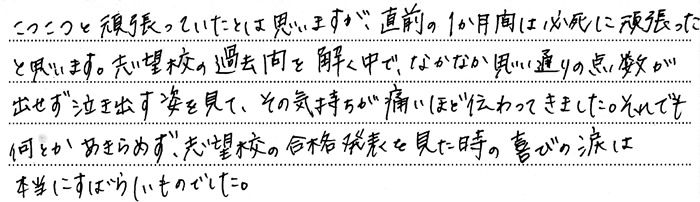 こつこつと頑張っていたとは思いますが、直前の1か月間は必死に頑張った
と思います。志望校の過去問を解く中で、なかなか思い通りの点数が
出せず泣き出す姿を見て、その気持ちが痛いほど伝わってきました。それでも
何とかあきらめず、志望校の合格発表を見た時の喜びの涙は
本当にすばらしいものでした。